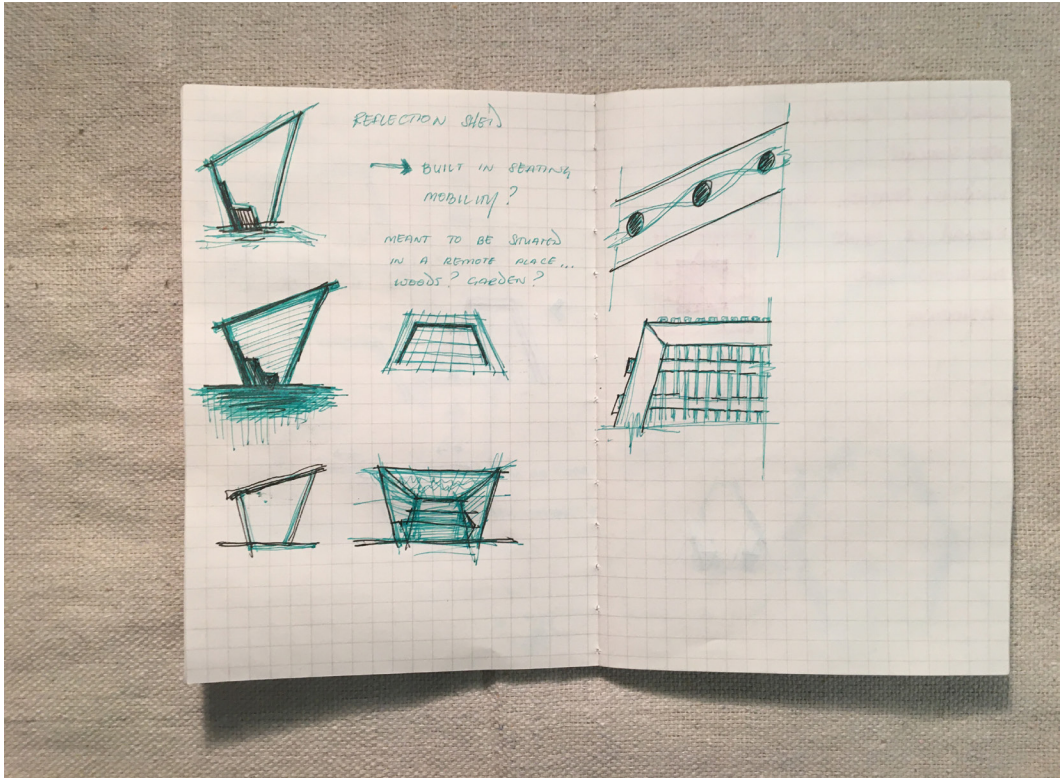 REFLECTION SHED
→ BUILT IN SEATING
MOBILITY?
MEANT TO BE SITUATED
IN A REMOTE PLACE...
WOODS? GARDEN?